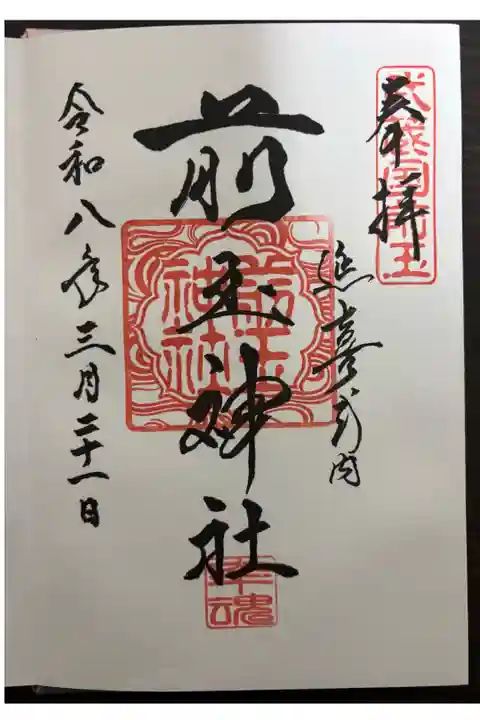 奉拝
武蔵国埼玉
延喜式内
前玉神社
前玉
神社
幸魂
令和八年三月二十一日